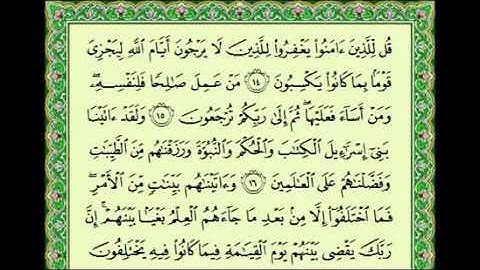 قُل لِّلَّذِينَ ءَامَنُوا۟ يَغْفِرُوا۟ لِلَّذِينَ لَا يَرْجُونَ أَيَّامَ ٱللَّهِ لِيَجْزِىَ
قَوْمًۢا بِمَا كَانُوا۟ يَكْسِبُونَ ١٤ مَنْ عَمِلَ صَٰلِحًا فَلِنَفْسِهِۦ ۖ
وَمَنْ أَسَآءَ فَعَلَيْهَا ۖ ثُمَّ إِلَىٰ رَبِّكُمْ تُرْجَعُونَ ١٥ وَلَقَدْ ءَاتَيْنَا
بَنِىٓ إِسْرَٰٓءِيلَ ٱلْكِتَٰبَ وَٱلْحُكْمَ وَٱلنُّبُوَّةَ وَرَزَقْنَٰهُم مِّنَ ٱلطَّيِّبَٰتِ
وَفَضَّلْنَٰهُمْ عَلَى ٱلْعَٰلَمِينَ ١٦ وَءَاتَيْنَٰهُم بَيِّنَٰتٍ مِّنَ ٱلْأَمْرِ ۖ
فَمَا ٱخْتَلَفُوٓا۟ إِلَّا مِنۢ بَعْدِ مَا جَآءَهُمُ ٱلْعِلْمُ بَغْيًۢا بَيْنَهُمْ ۚ إِنَّ
رَبَّكَ يَقْضِى بَيْنَهُمْ يَوْمَ ٱلْقِيَٰمَةِ فِيمَا كَانُوا۟ فِيهِ يَخْتَلِفُونَ